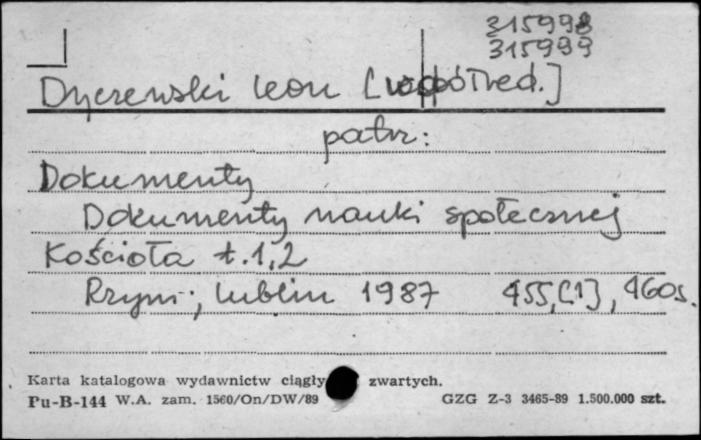 315998
315999
Dyczewski Leon [współred.]
patrz:
Dokumenty
Dokumenty nauki społecznej
Kościoła t.1,2
Rzym; Lublin 1987 455,[1], 460s.
Karta katalogowa wydawnictw ciągły zwartych.
Pu-B-144 W.A. zam. 1560/On/DW/89 GZG Z-3 3465-89 1.500.000 szt.